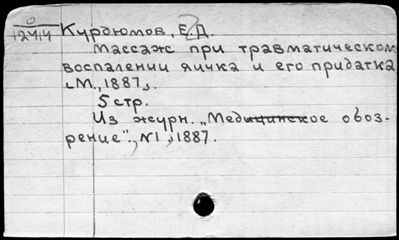 0
12414 Курдюмов, Е.Д.
Массаж при травматическом
воспалении яичка и его придатка
М., 1887.
5 стр.
Из журн. „Медицинское обоз-
рение", №1, 1887.